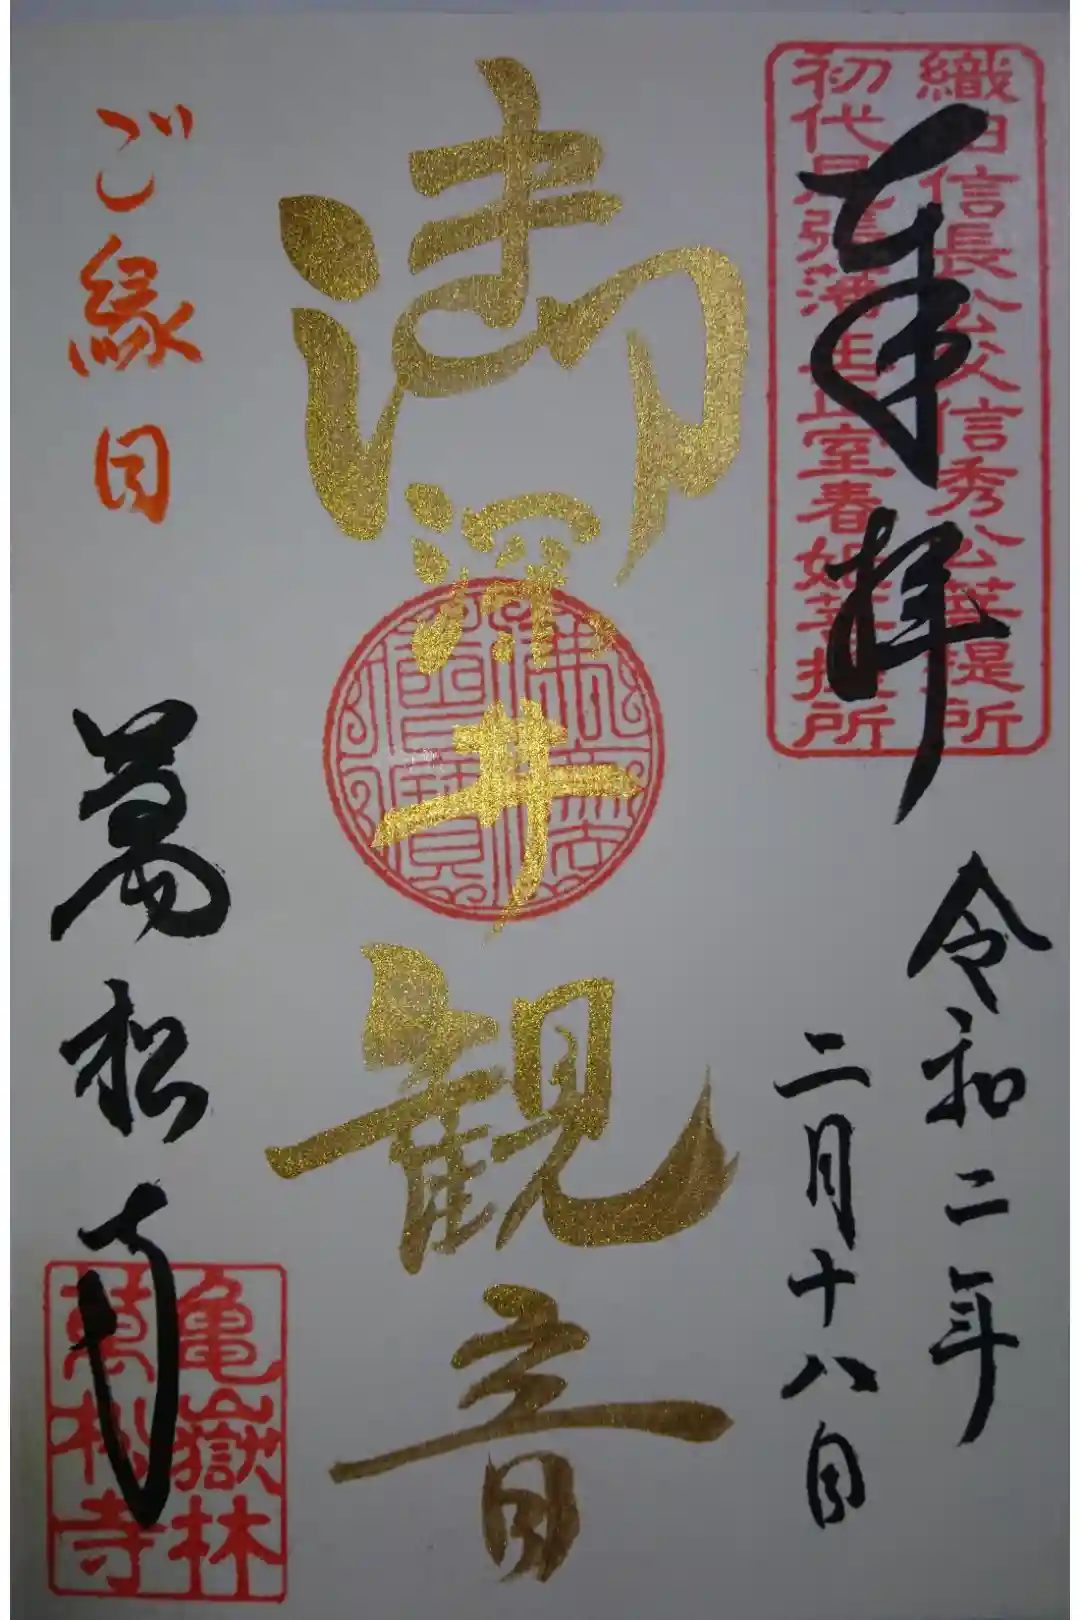 織田信長公父信秀公菩提所
初代尾張藩主正室春姫菩提所
奉拝
令和二年
二月十八日
御深井観音
佛法僧寶
ご縁日
萬松寺
亀嶽林
萬松寺